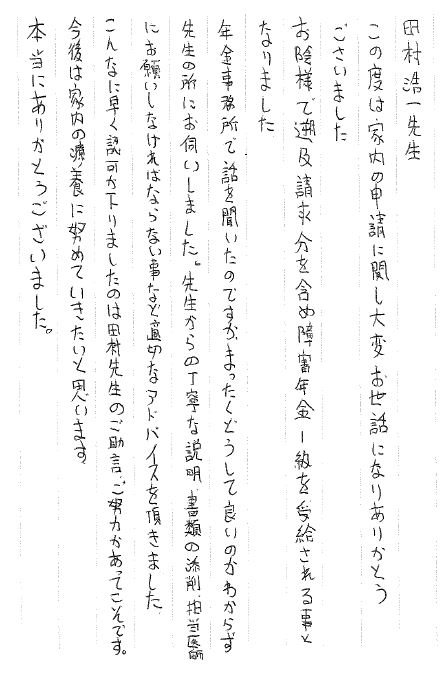 田村浩一先生
この度は家内の申請に関し大変お世話になりありがとう
ございました
お陰様で遡及請求分を含め障害年金1級を受給される事と
なりました
年金事務所で話を聞いたのですが、まったくどうして良いのかわからず
先生の所にお伺いしました。先生からの丁寧な説明、書類の添削、担当医師
にお願いしなければならない事など適切なアドバイスを頂きました
こんなに早く認可が下りましたのは田村先生のご助言、ご努力があってこそです。
今後は家内の療養に努めていきたいと思います
本当にありがとうございました。